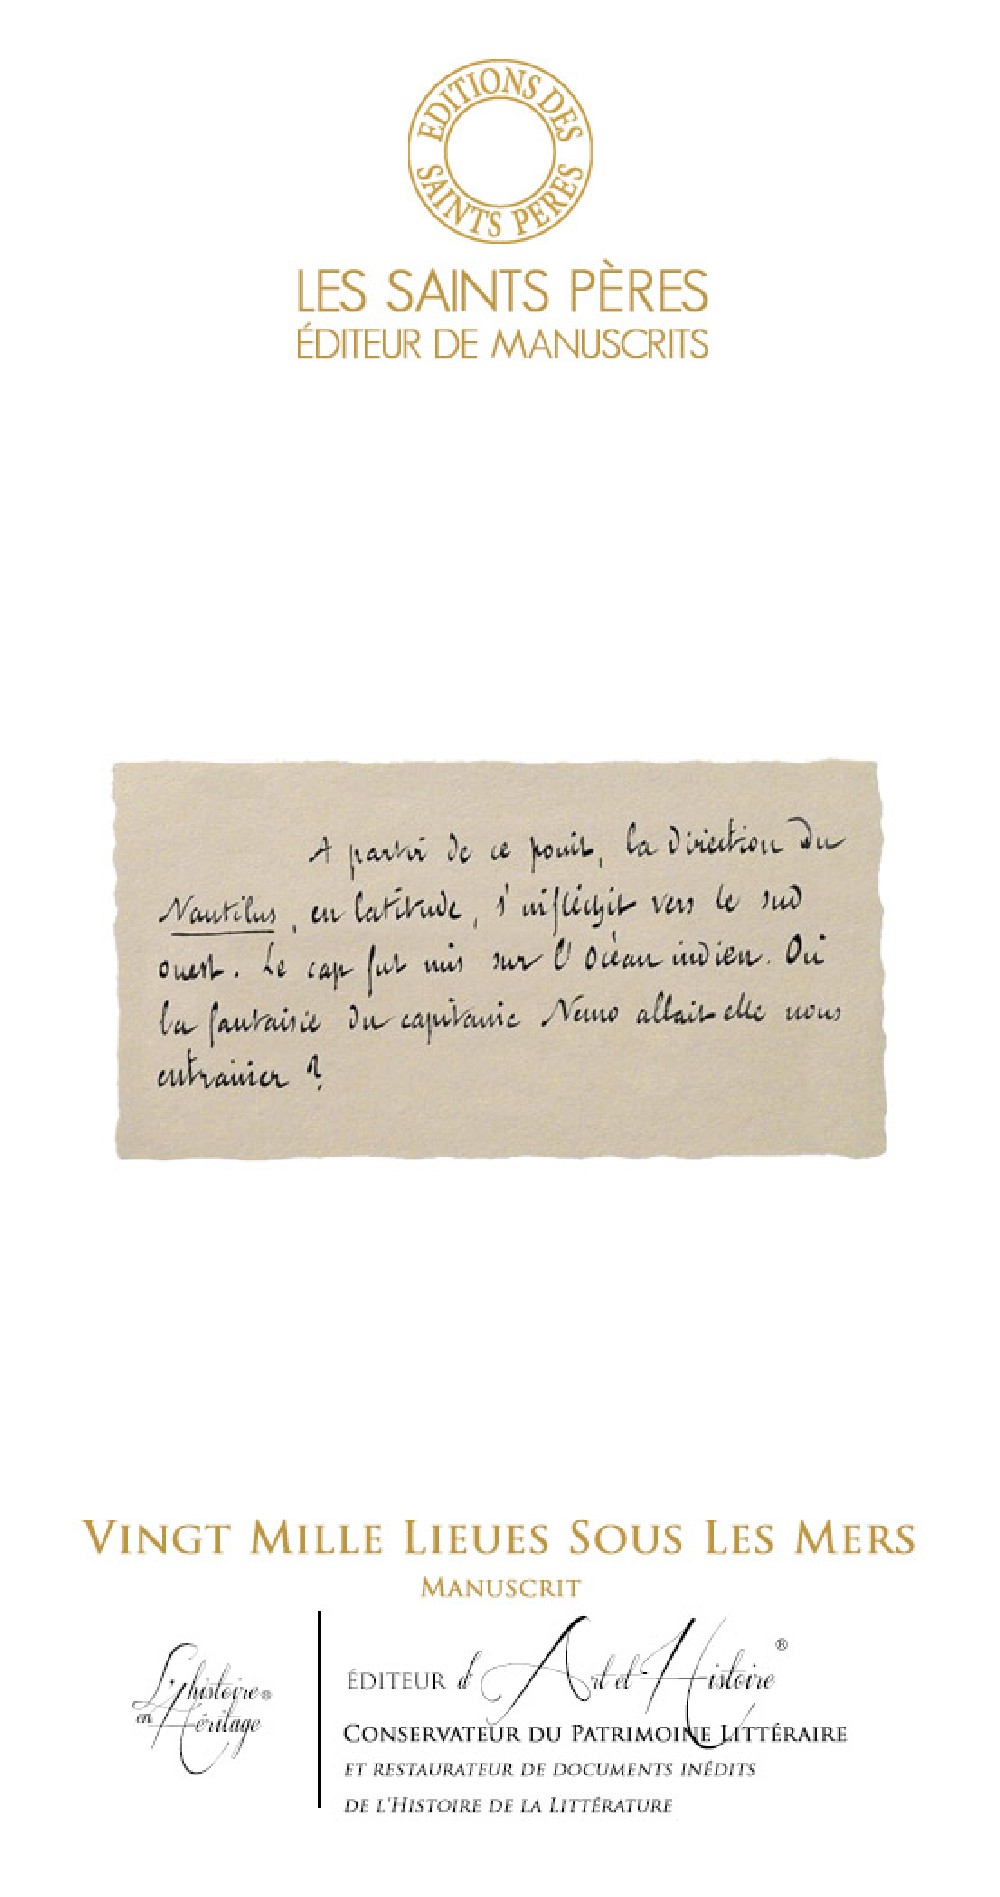 EDITIONS DES
SAINTS PERES
LES SAINTS PÈRES
ÉDITEUR DE MANUSCRITS
A partir de ce point, la direction du
Nautilus, en latitude, s'infléchit vers le sud
ouest. Le cap fut mis sur l'Océan indien. Où
la fantaisie du capitaine Nemo allait-elle nous
entrainer ?
VINGT MILLE LIEUES SOUS LES MERS
MANUSCRIT
L'histoire®
en Héritage
ÉDITEUR d'Art et Histoire®
CONSERVATEUR DU PATRIMOINE LITTÉRAIRE
ET RESTAURATEUR DE DOCUMENTS INÉDITS
DE L'HISTOIRE DE LA LITTÉRATURE